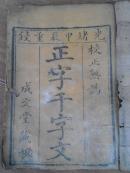 光緒甲辰重鋟
校正無訛
正字千字文
成文堂藏板